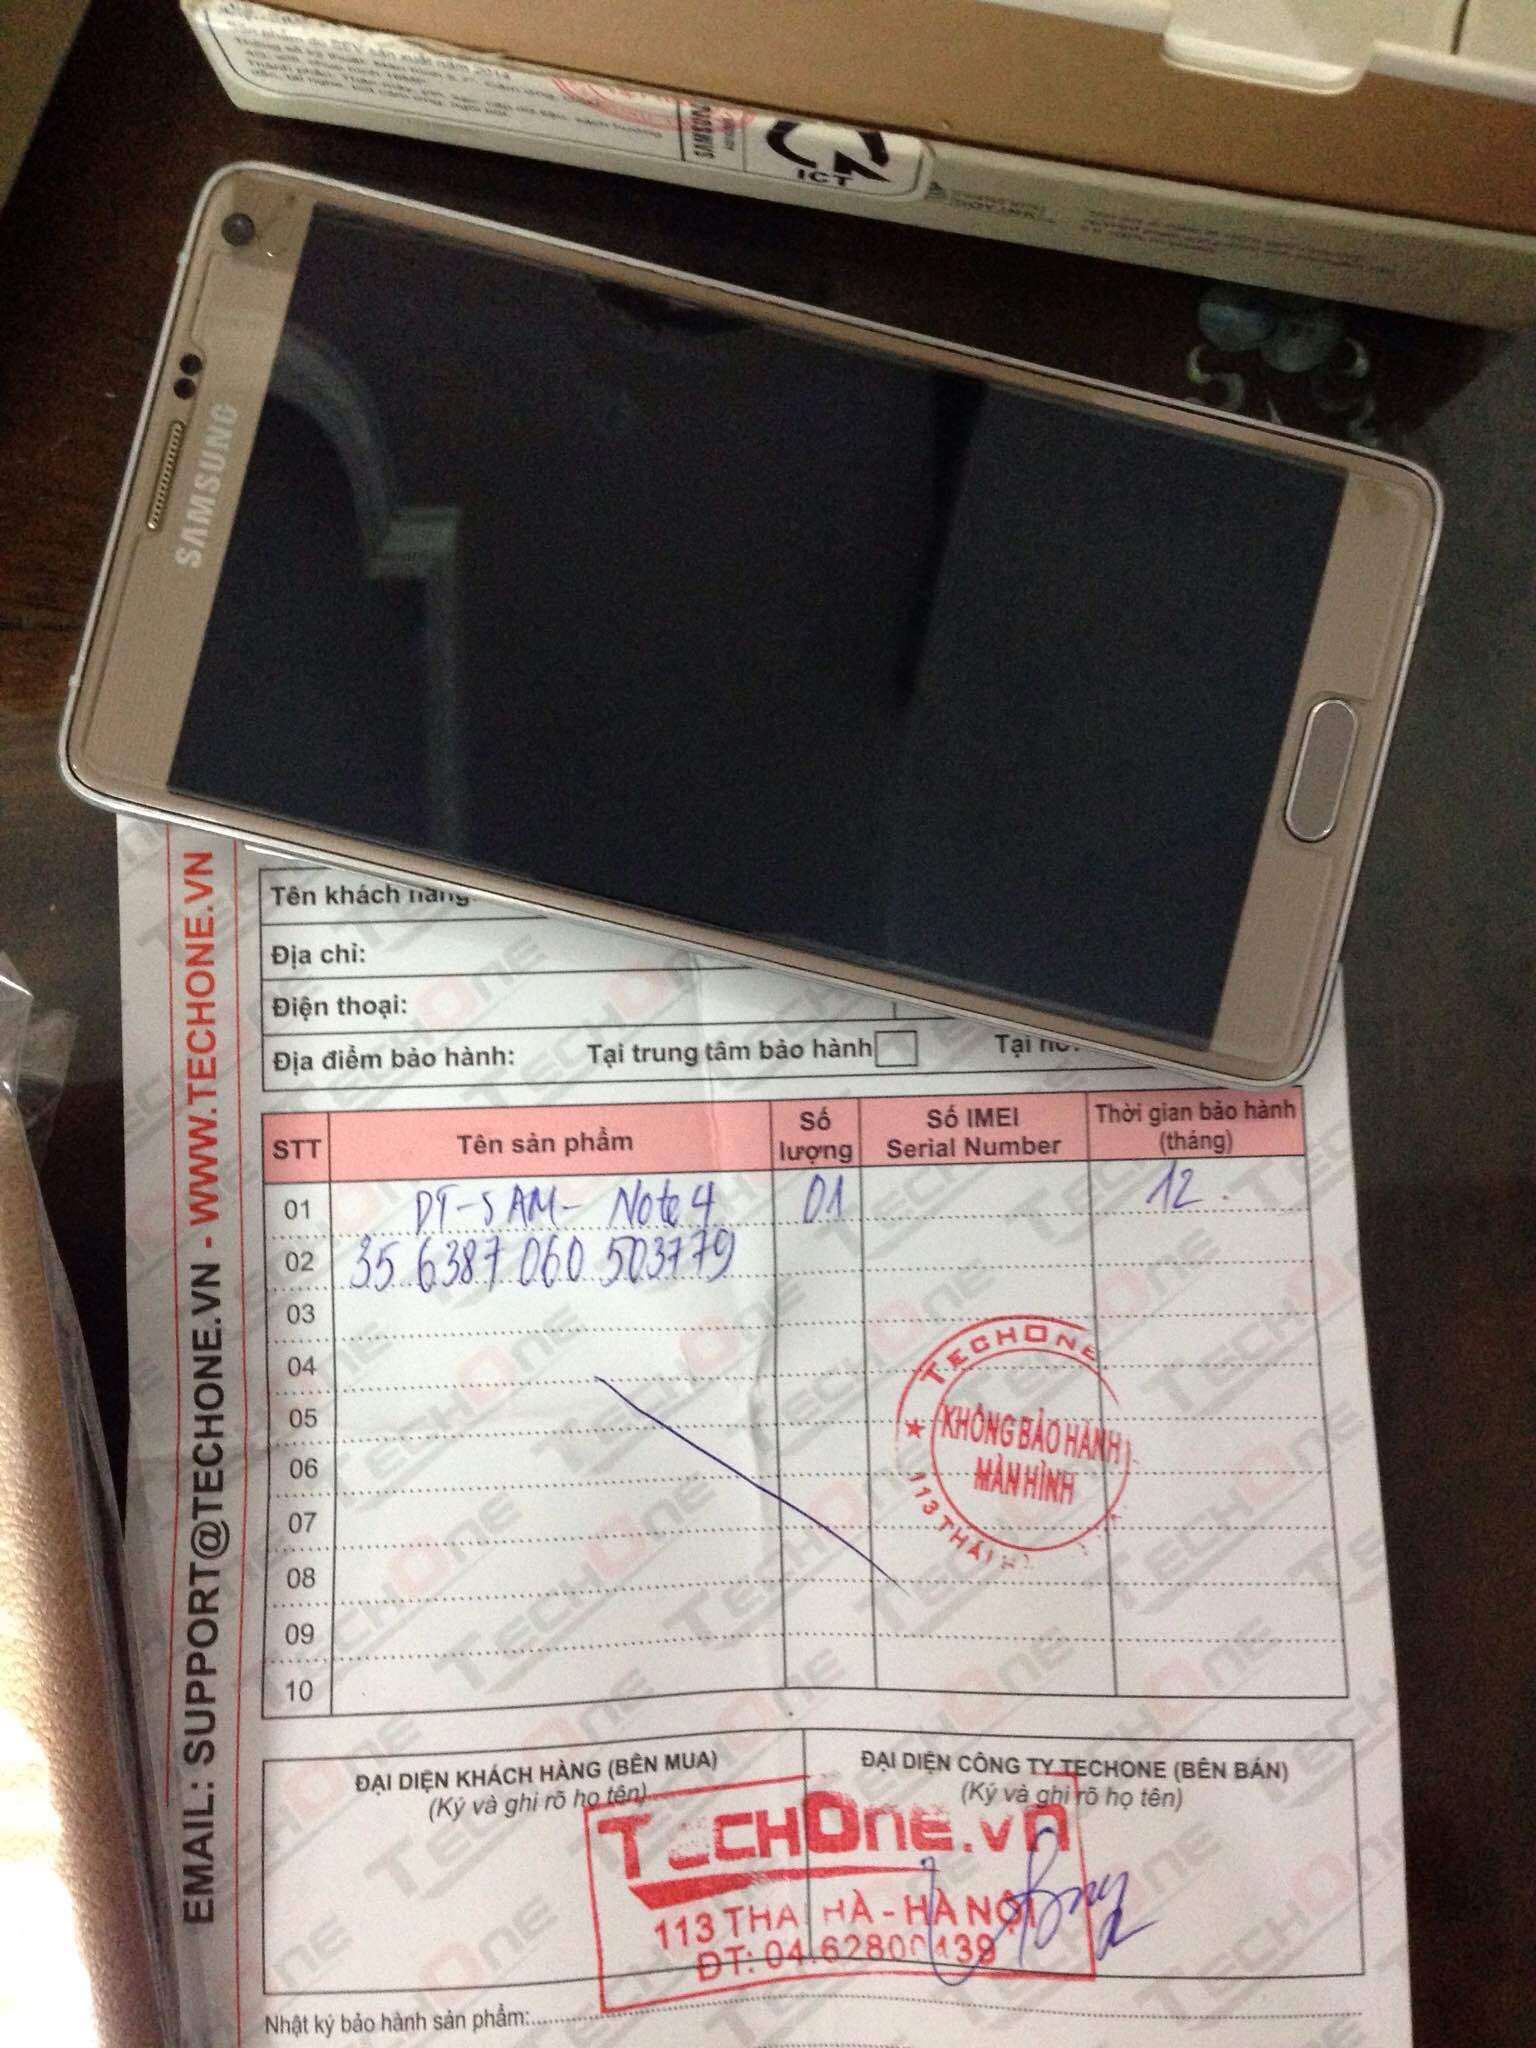 SAMSUNG
ICT
SAMSUNG
EMAIL: SUPPORT@TECHONE.VN - WWW.TECHONE.VN
Tên khách hàng
Địa chỉ:
Điện thoại:
Địa điểm bảo hành: Tại trung tâm bảo hành Tại
STT Tên sản phẩm Số lượng Số IMEI Serial Number Thời gian bảo hành (tháng)
01 ĐT-SAM- Note 4 01 12.
02 35 6387 060 503779
03
04
05
06
07
08
09
10
TECHONE
KHÔNG BẢO HÀNH
MÀN HÌNH
113 THÁI
ĐẠI DIỆN KHÁCH HÀNG (BÊN MUA) ĐẠI DIỆN CÔNG TY TECHONE (BÊN BÁN)
(Ký và ghi rõ họ tên) (Ký và ghi rõ họ tên)
TECHONE.VN
113 THÁI HÀ - HÀ NỘI
ĐT: 04.62800439
Nhật ký bảo hành sản phẩm: